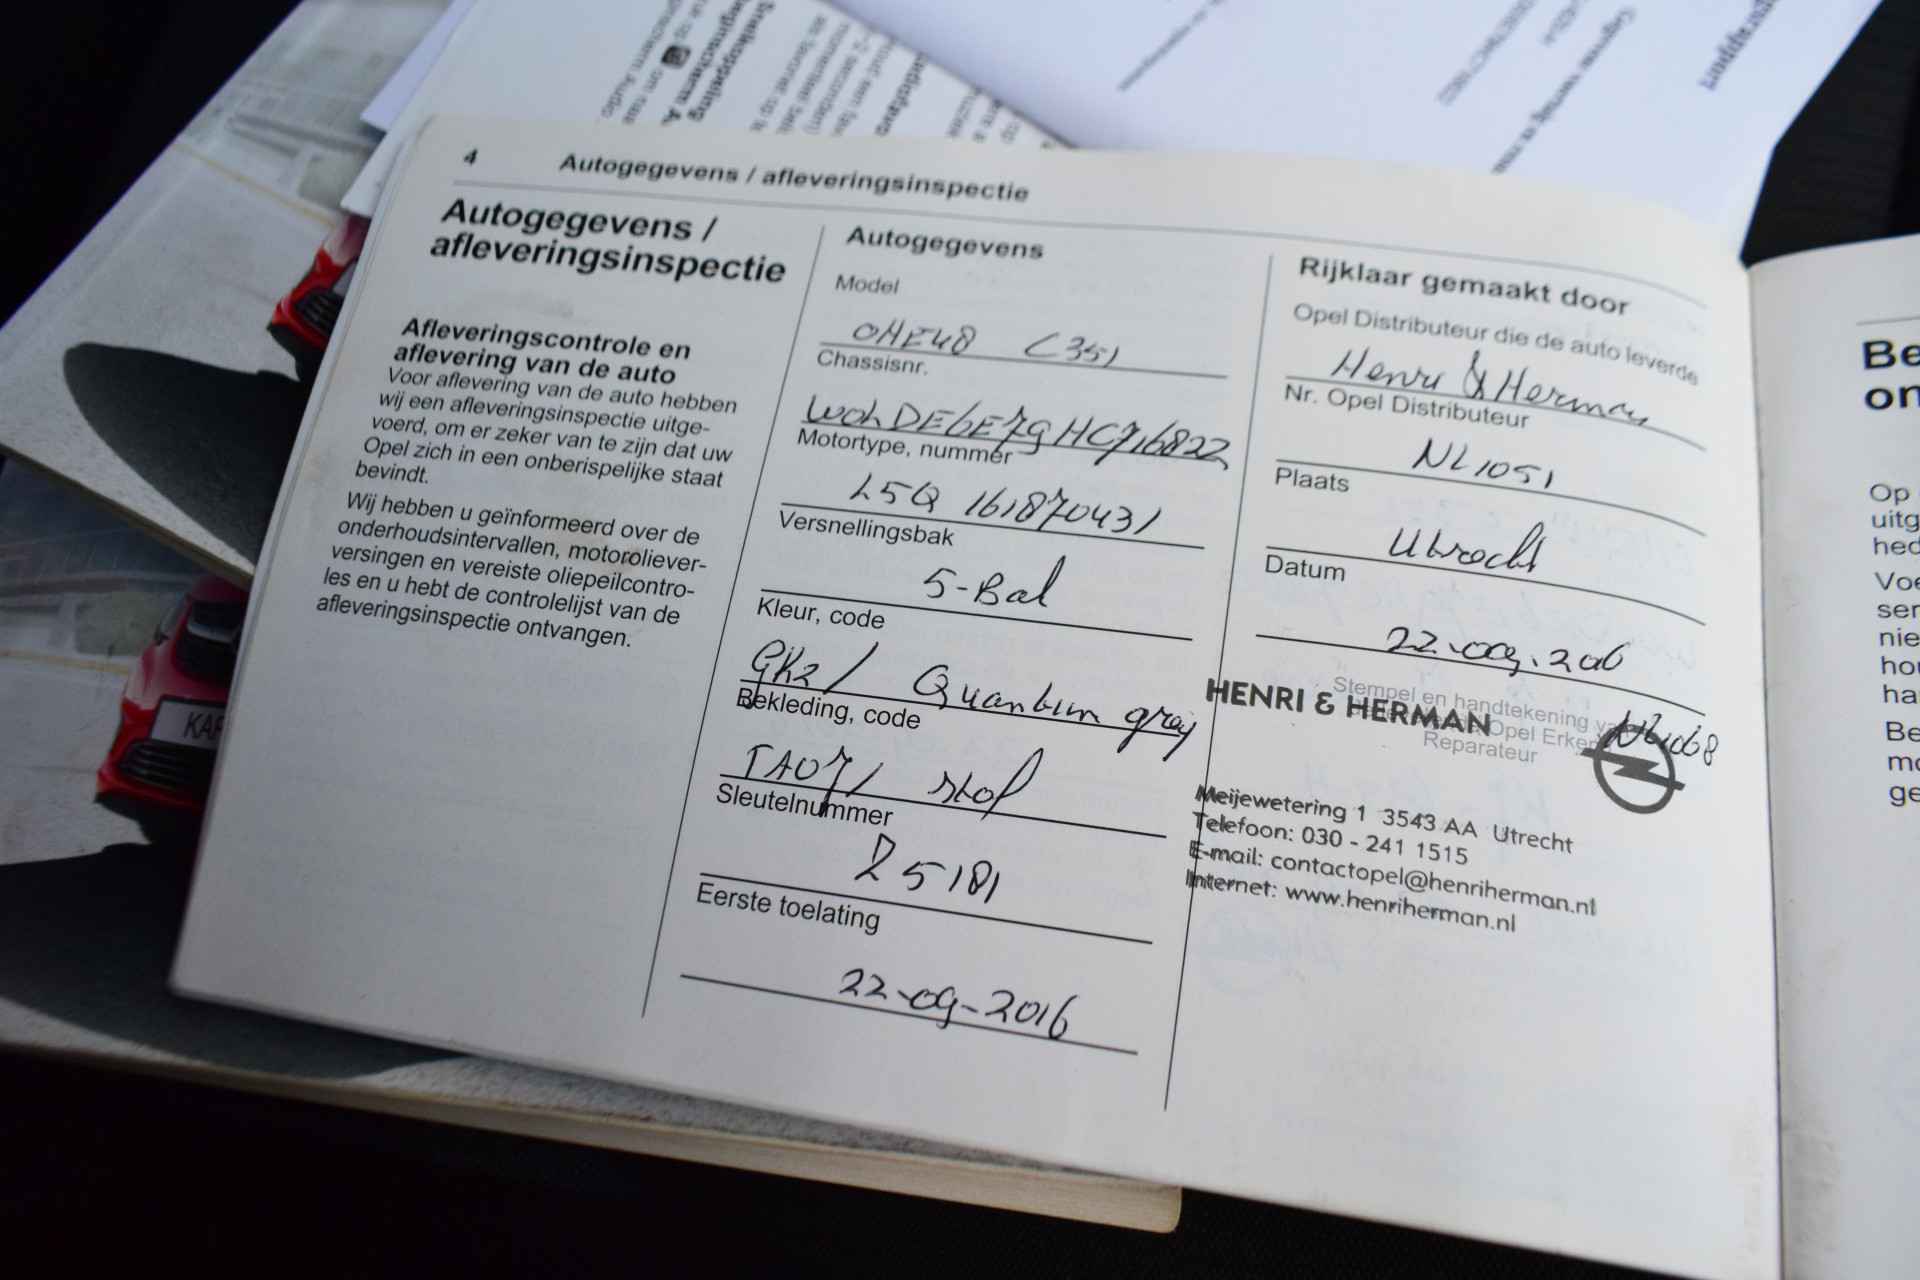 4 Autogegevens / afleveringsinspectie
Autogegevens /
afleveringsinspectie
Afleveringscontrole en
aflevering van de auto
Voor aflevering van de auto hebben
wij een afleveringsinspectie uitge-
voerd, om er zeker van te zijn dat uw
Opel zich in een onberispelijke staat
bevindt.
Wij hebben u geïnformeerd over de
onderhoudsintervallen, motoroliever-
versingen en vereiste oliepeilcontro-
les en u hebt de controlelijst van de
afleveringsinspectie ontvangen.
Autogegevens
Model
OHE48 C351
Chassisnr.
W0hDEbE79HC716822
Motortype, nummer
L5Q 161870431
Versnellingsbak
5-Bak
Kleur, code
GK2 / Quantum gray
Bekleding, code
TA07 / stof
Sleutelnummer
25181
Eerste toelating
22-09-2016
Rijklaar gemaakt door
Opel Distributeur die de auto leverde
Henri & Herman
Nr. Opel Distributeur
NL1051
Plaats
Utrecht
Datum
22-09-2016
Stempel en handtekening
Opel
Reparateur
HENRI & HERMAN
Meijewetering 1 3543 AA Utrecht
Telefoon: 030 - 241 1515
E-mail: contactopel@henriherman.nl
Internet: www.henriherman.nl
Be
on
Op
uitg
hed
Voe
ser
nie
hou
ha
Be
mo
ge